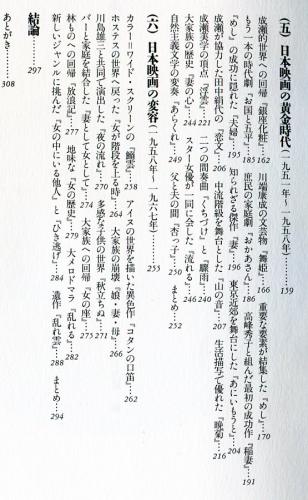 (五) 日本映画の黄金時代(一九五一年~一九五八年) ……159
成瀬的世界への回帰『銀座化粧』162 川端康成の文芸物『舞姫』166 重要な要素が結集した『めし』170
もう一本の時代劇『お国と五平』185 庶民の家庭劇『おかあさん』186 高峰秀子と組んだ最初の成功作『稲妻』191
『めし』の成功に隠れた『夫婦』195 知られざる傑作『妻』196 東京近郊を舞台にした『あにいもうと』204
成瀬が協力した田中絹代の『恋文』206 中流階級を舞台とした『山の音』207 生活描写で優れた『晩菊』216
成瀬美学の頂点『浮雲』221 二つの間奏曲『くちづけ』と『驟雨』240
大家族の歴史『妻の心』244 スター女優が一同に会した『流れる』246
自然主義文学の変奏『あらくれ』249 父と夫の間『杏っ子』250 まとめ252
(六) 日本映画の変容(一九五八年~一九六七年) ……255
カラー=ワイド・スクリーンの『鰯雲』258 アイヌの世界を描いた異色作『コタンの口笛』262
ホステスの世界へ戻った『女が階段を上る時』264 大家族の崩壊『娘・妻・母』266
川島雄三と共同で演出した『夜の流れ』270 多感な子供の世界『秋立ちぬ』271
バーと家庭を結合した『妻として女として』273 大家族への回帰『女の座』275
林ものへの回帰『放浪記』277 地味な『女の歴史』279 大メロドラマ『乱れる』282
新しいジャンルに挑んだ『女の中にいる他人』と『ひき逃げ』284 遺作『乱れ雲』288 まとめ294
結論 ……297
あとがき ……308